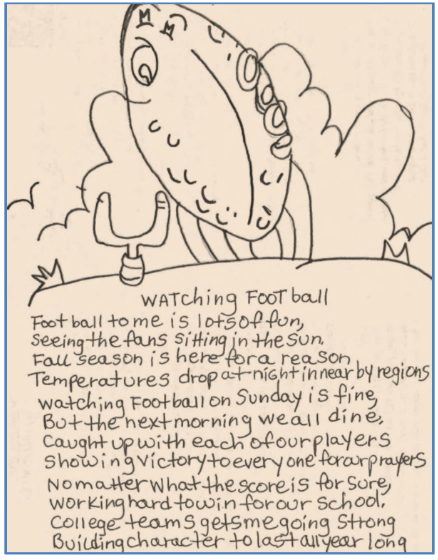 WATCHING FOOTball
Football to me is lots of fun,
Seeing the fans sitting in the sun.
Fall season is here for a reason
Temperatures drop at night in near by regions
watching Football on Sunday is fine,
But the next morning we all dine,
Caught up with each of our players
Showing victory to every one for our prayers
No matter what the score is for sure,
working hard to win for our school.
College teams gets me going strong
Building character to last all year long